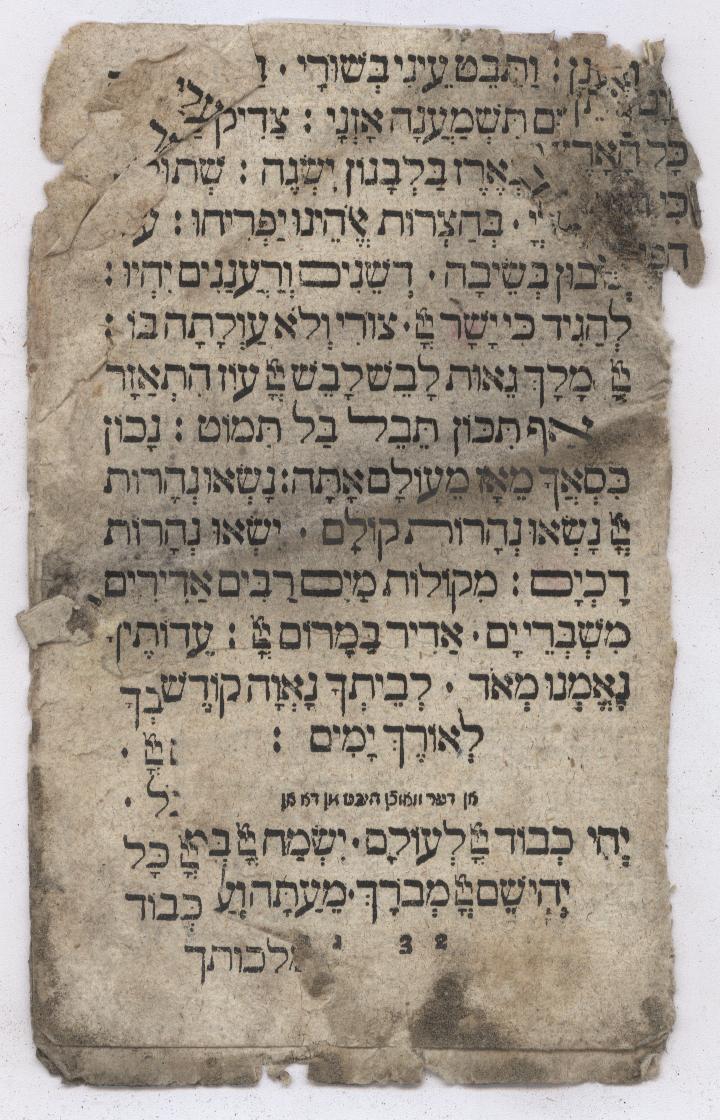 וַתַּבֵּט עֵינִי בְּשׁוּרָי ·
תִּשְׁמַעֲנָה אָזְנָי : צַדִּיק
כָּל הָאָרֶ
אֶרֶז בַּלְּבָנוֹן יִשְׂגֶּה : שְׁתוּ
כִּי
· בְּחַצְרוֹת אֱהֵינוּ יַפְרִיחוּ :
בְּשֵׂיבָה · דְּשֵׁנִים וְרַעֲנַנִּים יִהְיוּ :
לְהַגִּיד כִּי יָשָׁר יְיָ · צוּרִי וְלֹא עַוְלָתָה בּוֹ :
יְיָ מָלָךְ גֵּאוּת לָבֵשׁ לָבֵשׁ יְיָ עוֹז הִתְאַזָּר
אַף תִּכּוֹן תֵּבֵל בַּל תִּמּוֹט : נָכוֹן
כִּסְאֲךָ מֵאָז מֵעוֹלָם אָתָּה : נָשְׂאוּ נְהָרוֹת
יְיָ נָשְׂאוּ נְהָרוֹת קוֹלָם · יִשְׂאוּ נְהָרוֹת
דָּכְיָם : מִקּוֹלוֹת מַיִם רַבִּים אַדִּירִים
מִשְׁבְּרֵי יָם · אַדִּיר בַּמָּרוֹם יְיָ : עֵדוֹתֶיךָ
נֶאֶמְנוּ מְאֹד · לְבֵיתְךָ נָאֲוָה קוֹדֶשׁ
לְאוֹרֶךְ יָמִים :
אן דער וואוכן העבט אן דא מן
יְהִי כְבוֹד יְיָ לְעוֹלָם · יִשְׂמַח יְיָ כָּל
יְהִי שֵׁם יְיָ מְבֹרָךְ · מֵעַתָּה וְעַ כְּבוֹד
32
מלכותך